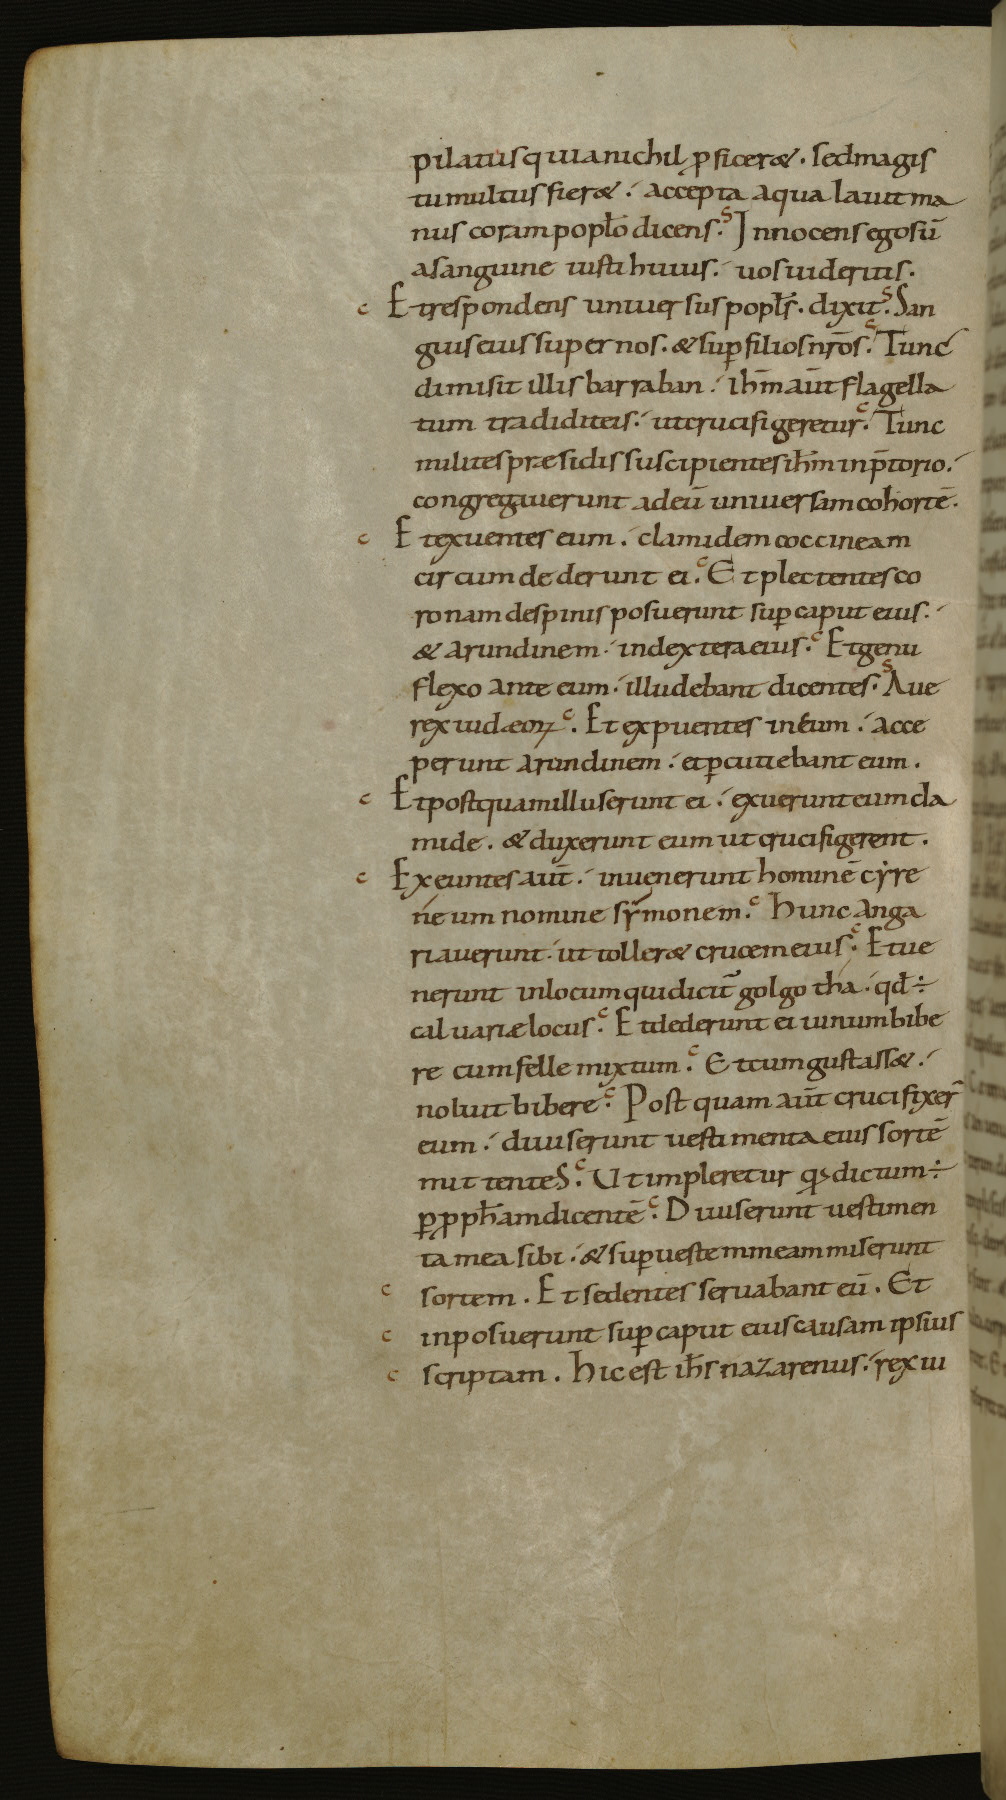 pilatus quia nichil ꝓficeret . sed magis
tumultus fieret . accepta aqua lauit ma
nus coram popło dicens . s Innocens ego sū
a sanguine iusti huius . uos uideritis .
c Et respondens uniuersus popłs . dixit . s San
guis eius super nos . & suꝑ filios nr̄os . c Tunc
dimisit illis barraban . ihm̄ aūt flagella
tum tradidit eis . ut crucifigeretur . c Tunc
milites præsidis suscipientes ihm̄ in p̄torio .
congregauerunt ad eū uniuersam cohortē .
c Et exuentes eum . clamidem coccineam
circumdederunt ei . c Et plectentes co
ronam de spinis posuerunt suꝑ caput eius .
& arundinem . in dextera eius . c Et genu
flexo ante eum . illudebant dicentes . s Aue
rex iudæoꝝ . c Et expuentes in eum . acce
perunt arundinem . et ꝑcutiebant eum .
c Et postquam illuserunt ei . exuerunt eum cla
mide . & duxerunt eum ut crucifigerent .
c Exeuntes aūt . inuenerunt hominē cyre
neum nomine symonem . c Hunc anga
riauerunt . ut tolleret crucem eius . c Et ue
nerunt in locum qui dicit̃ golgotha . qđ ÷
caluariæ locus . c Et dederunt ei uinum bibe
re cum felle mixtum . c Et cum gustasset .
noluit bibere . c Postquam aūt crucifixer̄
eum . diuiserunt uestimenta eius sortē
mittenteS . c Ut impleretur qd dictum ÷
ꝑ ꝓpħam dicentē . c Diuiserunt uestimen
ta mea sibi . & suꝑ uestem meam miserunt
c sortem . Et sedentes seruabant eū . Et
c inposuerunt suꝑ caput eius causam ipsius
c scriptam . Hic est ihs̄ nazarenus . rex iu